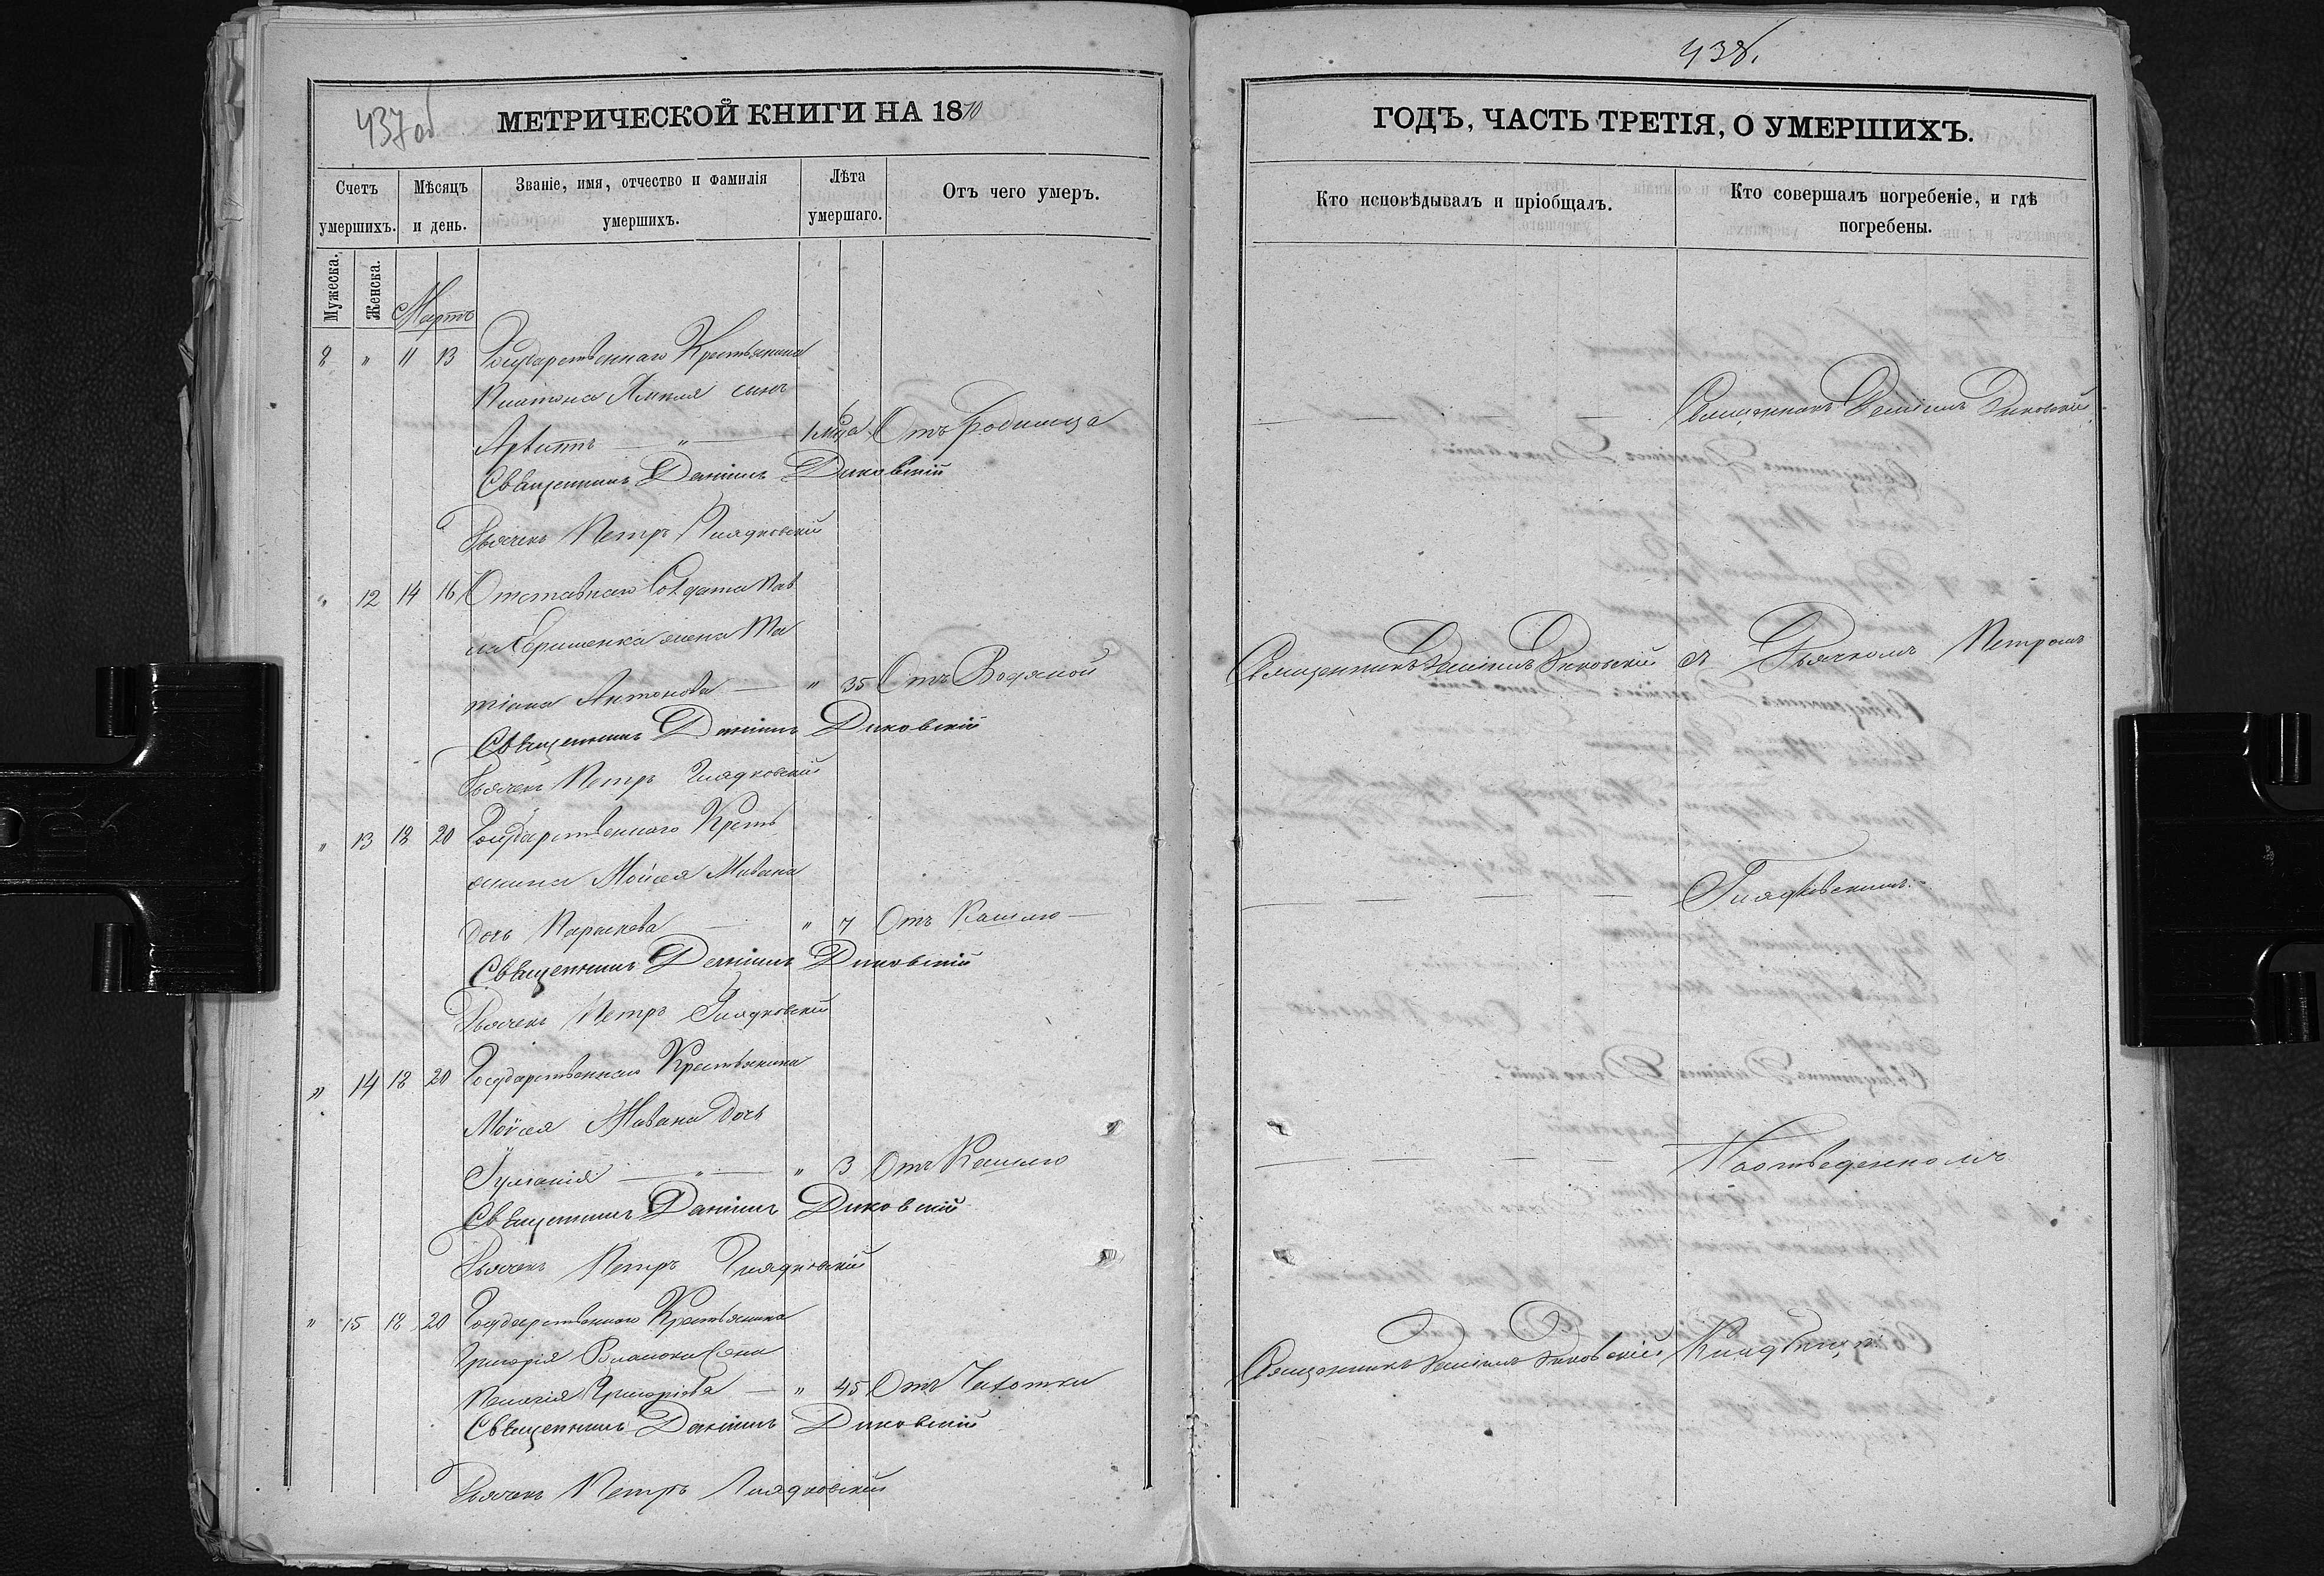 437 об
МЕТРИЧЕСКОЙ КНИГИ НА 1870
Счетъ умершихъ.
Мѣсяцъ и день.
Званіе, имя, отчество и фамилія умершихъ.
Лѣта умершаго.
Отъ чего умеръ.
Мужеска.
Женска.
Мартъ
8 " 11 13 Государственнаго Крестьянина
Платона сынъ
1 мца Отъ Родимца
Священникъ Даніилъ Диковскій
Дьячекъ Петръ Гладковскій
" 12 14 16 Отставнаго Солдата Пав
ла жена Та
тіана Антонова — " 35 Отъ Водяной
Священникъ Даніилъ Диковскій
Дьячекъ Петръ Гладковскій
" 13 18 20 Государственнаго Кресть
янина Мойсея
дочь Параскева — " 7 Отъ Кашлю —
Священникъ Даніилъ Диковскій
Дьячекъ Петръ Гладковскій
" 14 18 20 Государственнаго Крестьянина
Мойсея дочь
— " — " 3 Отъ Кашлю
Священникъ Даніилъ Диковскій
Дьячекъ Петръ Гладковскій
" 15 18 20 Государственнаго Крестьянина
Григорія
Григоріева — " 45 Отъ Чахотки
Священникъ Даніилъ Диковскій
Дьячекъ Петръ Гладковскій
438.
ГОДЪ, ЧАСТЬ ТРЕТІЯ, О УМЕРШИХЪ.
Кто исповѣдывалъ и пріобщалъ.
Кто совершалъ погребеніе, и гдѣ погребены.
— — — Священникъ Даніилъ Диковскій
Священникъ Даніилъ Диковскій съ Дьячкомъ Петромъ
— — — — Гладковскимъ.
— — — —
Священникъ Даніилъ Диковскій Кладбищѣ